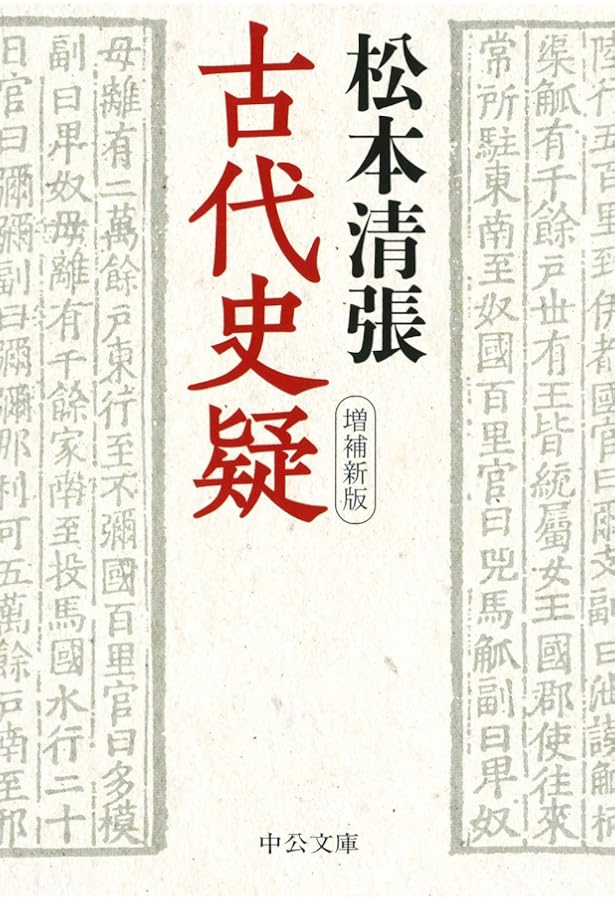 陸行五百里到伊都國官曰爾支副曰泄謨觚柄
渠觚有千餘戶世有王皆統屬女王國郡使往來
常所駐東南至奴國百里官曰兕馬觚副曰卑奴
松本清張
増補新版
古代史疑
毋離有二萬餘戶東行至不彌國百里官曰多模
副曰卑奴毋離有千餘家南至投馬國水行二十
日官曰彌彌副曰彌彌那利可五萬餘戶南至邪
中公文庫